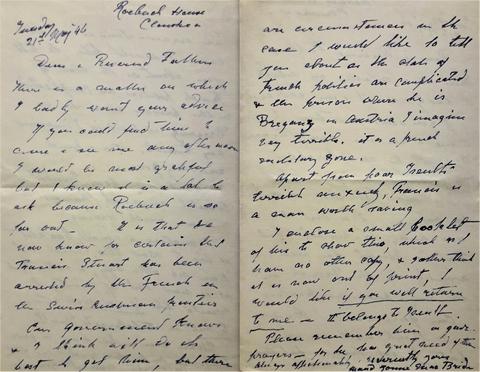 Roebuck House
Clonskea
Tuesday
21st May 46
Dear & Reverend Father
There is a matter on which
I badly want your advice
If you could find time to
come & see me any afternoon
I would be most grateful
but I know it is a lot to
ask because Roebuck is so
far out – It is that we
now know for certain that
Francis Stuart has been
arrested by the French on
the Swiss Austrian frontier
Our Government knows
& I think will do its
best to get him, but there
are circumstances in the
case I would like to tell
you about as the state of
French politics are complicated
& the prison where he is
Bregenz in Austria I imagine
very terrible. it is a french
military zone.
Apart from poor Iseult's
terrible anxiety, Francis is
a man worth saving
I enclose a small booklet
of his to show this, which as I
have no other copy & gather that
it is now out of print, I
would like if you will return
to me – It belongs to Iseult.
Please remember him in your
prayers – for he has great need of them
Always affectionately & reverently yours
Maud Gonne MacBride